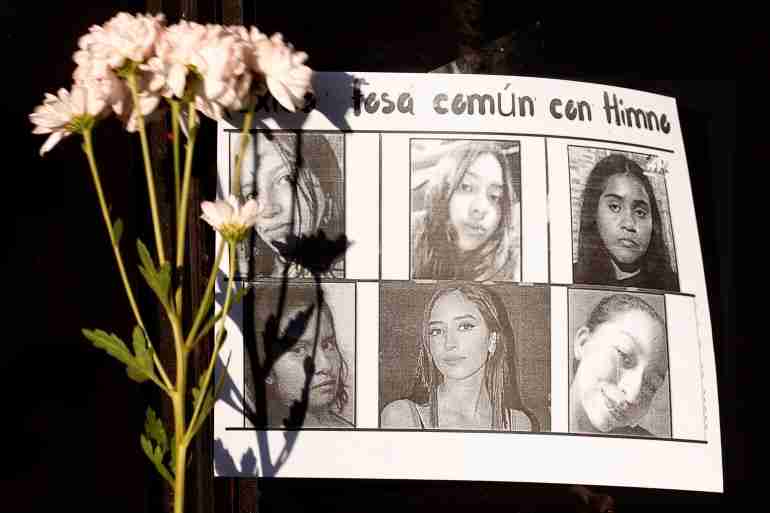 fosa común con Himno